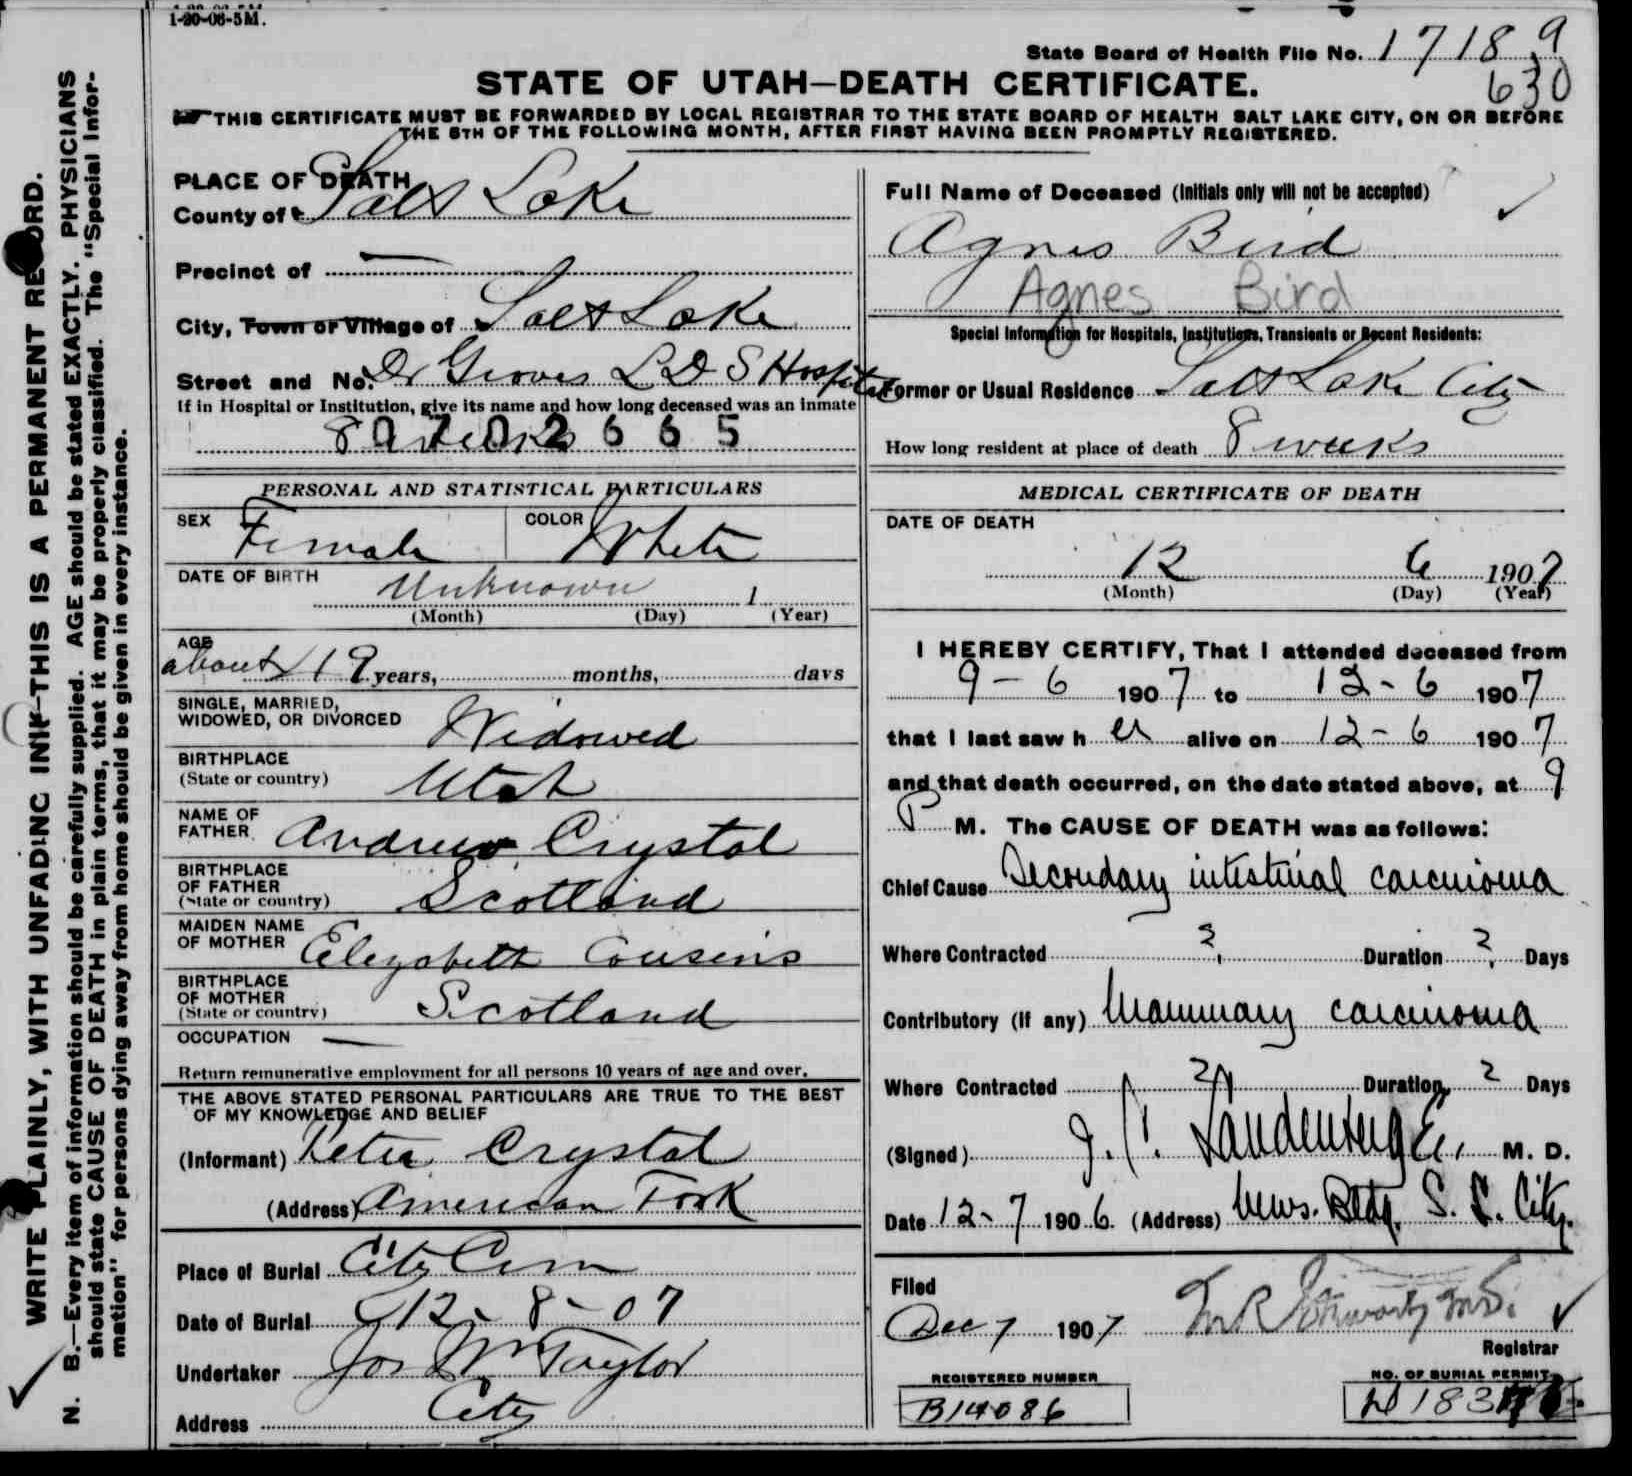 1-20-06-5M.
State Board of Health File No. 17189
630
STATE OF UTAH—DEATH CERTIFICATE.
THIS CERTIFICATE MUST BE FORWARDED BY LOCAL REGISTRAR TO THE STATE BOARD OF HEALTH SALT LAKE CITY, ON OR BEFORE
THE 5TH OF THE FOLLOWING MONTH, AFTER FIRST HAVING BEEN PROMPTLY REGISTERED.
WRITE PLAINLY, WITH UNFADING INK—THIS IS A PERMANENT RECORD.
N. B.—Every item of information should be carefully supplied. AGE should be stated EXACTLY. PHYSICIANS
should state CAUSE OF DEATH in plain terms, that it may be properly classified. The "Special Infor-
mation" for persons dying away from home should be given in every instance.
PLACE OF DEATH
County of Salt Lake
Precinct of —
City, Town or Village of Salt Lake
Street and No. Dr Groves L D S Hospital
If in Hospital or Institution, give its name and how long deceased was an inmate
8 weeks
0702665
PERSONAL AND STATISTICAL PARTICULARS
SEX Female COLOR White
DATE OF BIRTH Unknown 1
(Month) (Day) (Year)
AGE
about 19 years, months, days
SINGLE, MARRIED,
WIDOWED, OR DIVORCED Widowed
BIRTHPLACE
(State or country) Utah
NAME OF
FATHER Andrew Crystal
BIRTHPLACE
OF FATHER
(State or country) Scotland
MAIDEN NAME
OF MOTHER Elizabeth Cousins
BIRTHPLACE
OF MOTHER
(State or country) Scotland
OCCUPATION —
Return remunerative employment for all persons 10 years of age and over.
THE ABOVE STATED PERSONAL PARTICULARS ARE TRUE TO THE BEST
OF MY KNOWLEDGE AND BELIEF
(Informant) Peter Crystal
(Address) American Fork
Place of Burial City Cem
Date of Burial 12 - 8 - 07
Undertaker Jos Wm Taylor
Address City
Full Name of Deceased (Initials only will not be accepted)
Agnes Bird
Agnes Bird
Special Information for Hospitals, Institutions, Transients or Recent Residents:
Former or Usual Residence Salt Lake City
How long resident at place of death 8 weeks
MEDICAL CERTIFICATE OF DEATH
DATE OF DEATH
12 6 1907
(Month) (Day) (Year)
I HEREBY CERTIFY, That I attended deceased from
9 - 6 1907 to 12 - 6 1907
that I last saw h er alive on 12 - 6 1907
and that death occurred, on the date stated above, at 9
P M. The CAUSE OF DEATH was as follows:
Chief Cause Secondary intestinal carcinoma
Where Contracted ? Duration ? Days
Contributory (if any) Mammary carcinoma
Where Contracted ? Duration ? Days
(Signed) M. D.
Date 12 - 7 1906. (Address) News. Bldg. S. L. City.
Filed
Dec 7 1907
Registrar
REGISTERED NUMBER
B14086
NO. OF BURIAL PERMIT